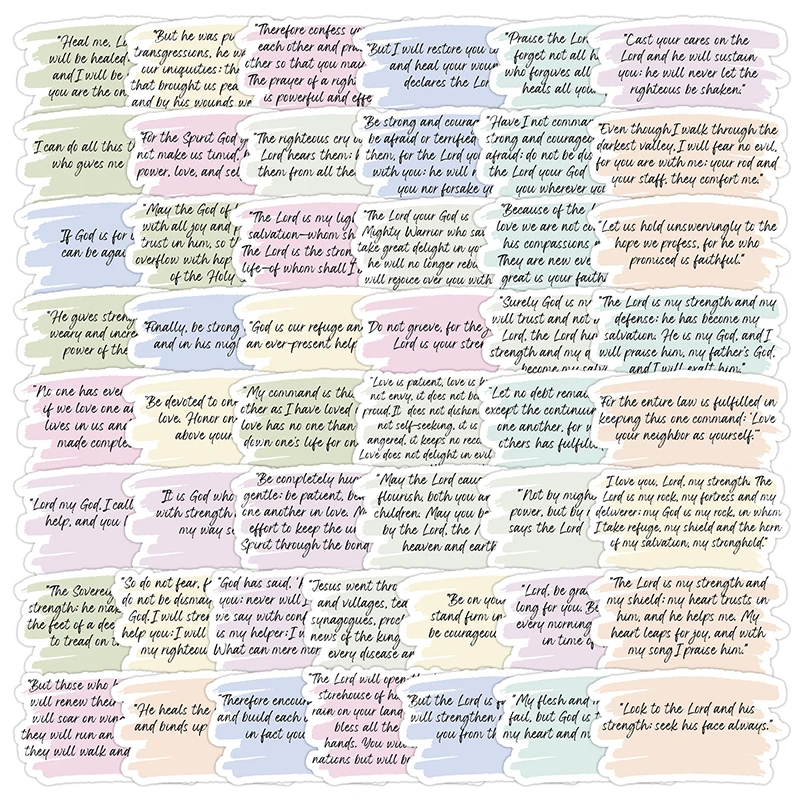 "Heal me, L
will be healed
and I will be
you are the on
"But he was pu
transgressions, he w
our iniquities: th
that brought us pea
and by his wounds we
"Therefore confess yo
each other and pra
other so that you may
The prayer of a righ
is powerful and effe
"But I will restore you t
and heal your wour
declares the Lor
"Praise the Lor
forget not all h
who forgives all
heals all you
"Cast your cares on the
Lord and he will sustain
you: he will never let the
righteous be shaken."
I can do all this t
who gives me
"For the Spirit God g
not make us timid,
power, love, and sel
"The righteous cry o
Lord hears them: h
them from all the
"Be strong and courag
be afraid or terrified
them, for the Lord yo
with you: he will n
you nor forsake y
"Have I not comman
strong and courage
afraid: do not be dis
the Lord your God
you wherever yo
"Even though I walk through the
darkest valley, I will fear no evil,
for you are with me: your rod and
your staff, they comfort me."
If God is for u
can be agai
"May the God of h
with all joy and p
trust in him, so th
overflow with hop
of the Holy
"The Lord is my ligh
salvation—whom sh
The Lord is the stron
life—of whom shall I
"The Lord your God is
Mighty Warrior who sa
take great delight in yo
he will no longer rebu
will rejoice over you with
"Because of the L
love we are not co
his compassions n
They are new ever
great is your faith
"Let us hold unswervingly to the
hope we profess, for he who
promised is faithful."
"He gives streng
weary and incre
power of the
"Finally, be strong
and in his mig
"God is our refuge an
an ever-present help
"Do not grieve, for the j
Lord is your stren
"Surely God is m
will trust and not
Lord, the Lord him
strength and my d
become my sal
"The Lord is my strength and my
defense: he has become my
salvation. He is my God, and I
will praise him, my father's God,
and I will exalt him."
"No one has ever
if we love one a
lives in us and
made comple
"Be devoted to one
love. Honor on
above you
"My command is this
other as I have loved
love has no one than
down one's life for on
"Love is patient, love is k
not envy, it does not bo
proud. It does not dishon
not self-seeking, it is
angered, it keeps no reco
Love does not delight in evil
"Let no debt remai
except the continuin
one another, for w
others has fulfill
"For the entire law is fulfilled in
keeping this one command: 'Love
your neighbor as yourself.'"
"Lord my God, I call
help, and you
"It is God who
with strength
my way s
"Be completely hum
gentle: be patient, bea
one another in love. M
effort to keep the u
Spirit through the bond
"May the Lord caus
flourish, both you an
children. May you be
by the Lord, the
heaven and earth
"Not by migh
power, but by
says the Lord
I love you, Lord, my strength. The
Lord is my rock, my fortress and my
deliverer: my God is my rock, in whom
I take refuge, my shield and the horn
of my salvation, my stronghold."
"The Soverei
strength: he ma
the feet of a dee
to tread on
"So do not fear, f
do not be dismay
God. I will stren
help you: I will
my righteou
"God has said, '
you: never will I
we say with conf
is my helper: I w
What can mere mor
"Jesus went thro
and villages, tea
synagogues, procl
news of the king
every disease an
"Be on you
stand firm in
be courageou
"Lord, be gra
long for you. Be
every morning
in time o
"The Lord is my strength and
my shield: my heart trusts in
him, and he helps me. My
heart leaps for joy, and with
my song I praise him."
"But those who h
will renew their
will soar on wing
they will run and
they will walk and
"He heals the
and binds up
"Therefore encour
and build each
in fact you
"The Lord will open th
storehouse of hi
rain on your land
bless all the
hands. You will
nations but will b
"But the Lord is
will strengthen
you from th
"My flesh and m
fail, but God is t
my heart and m
"Look to the Lord and his
strength: seek his face always."